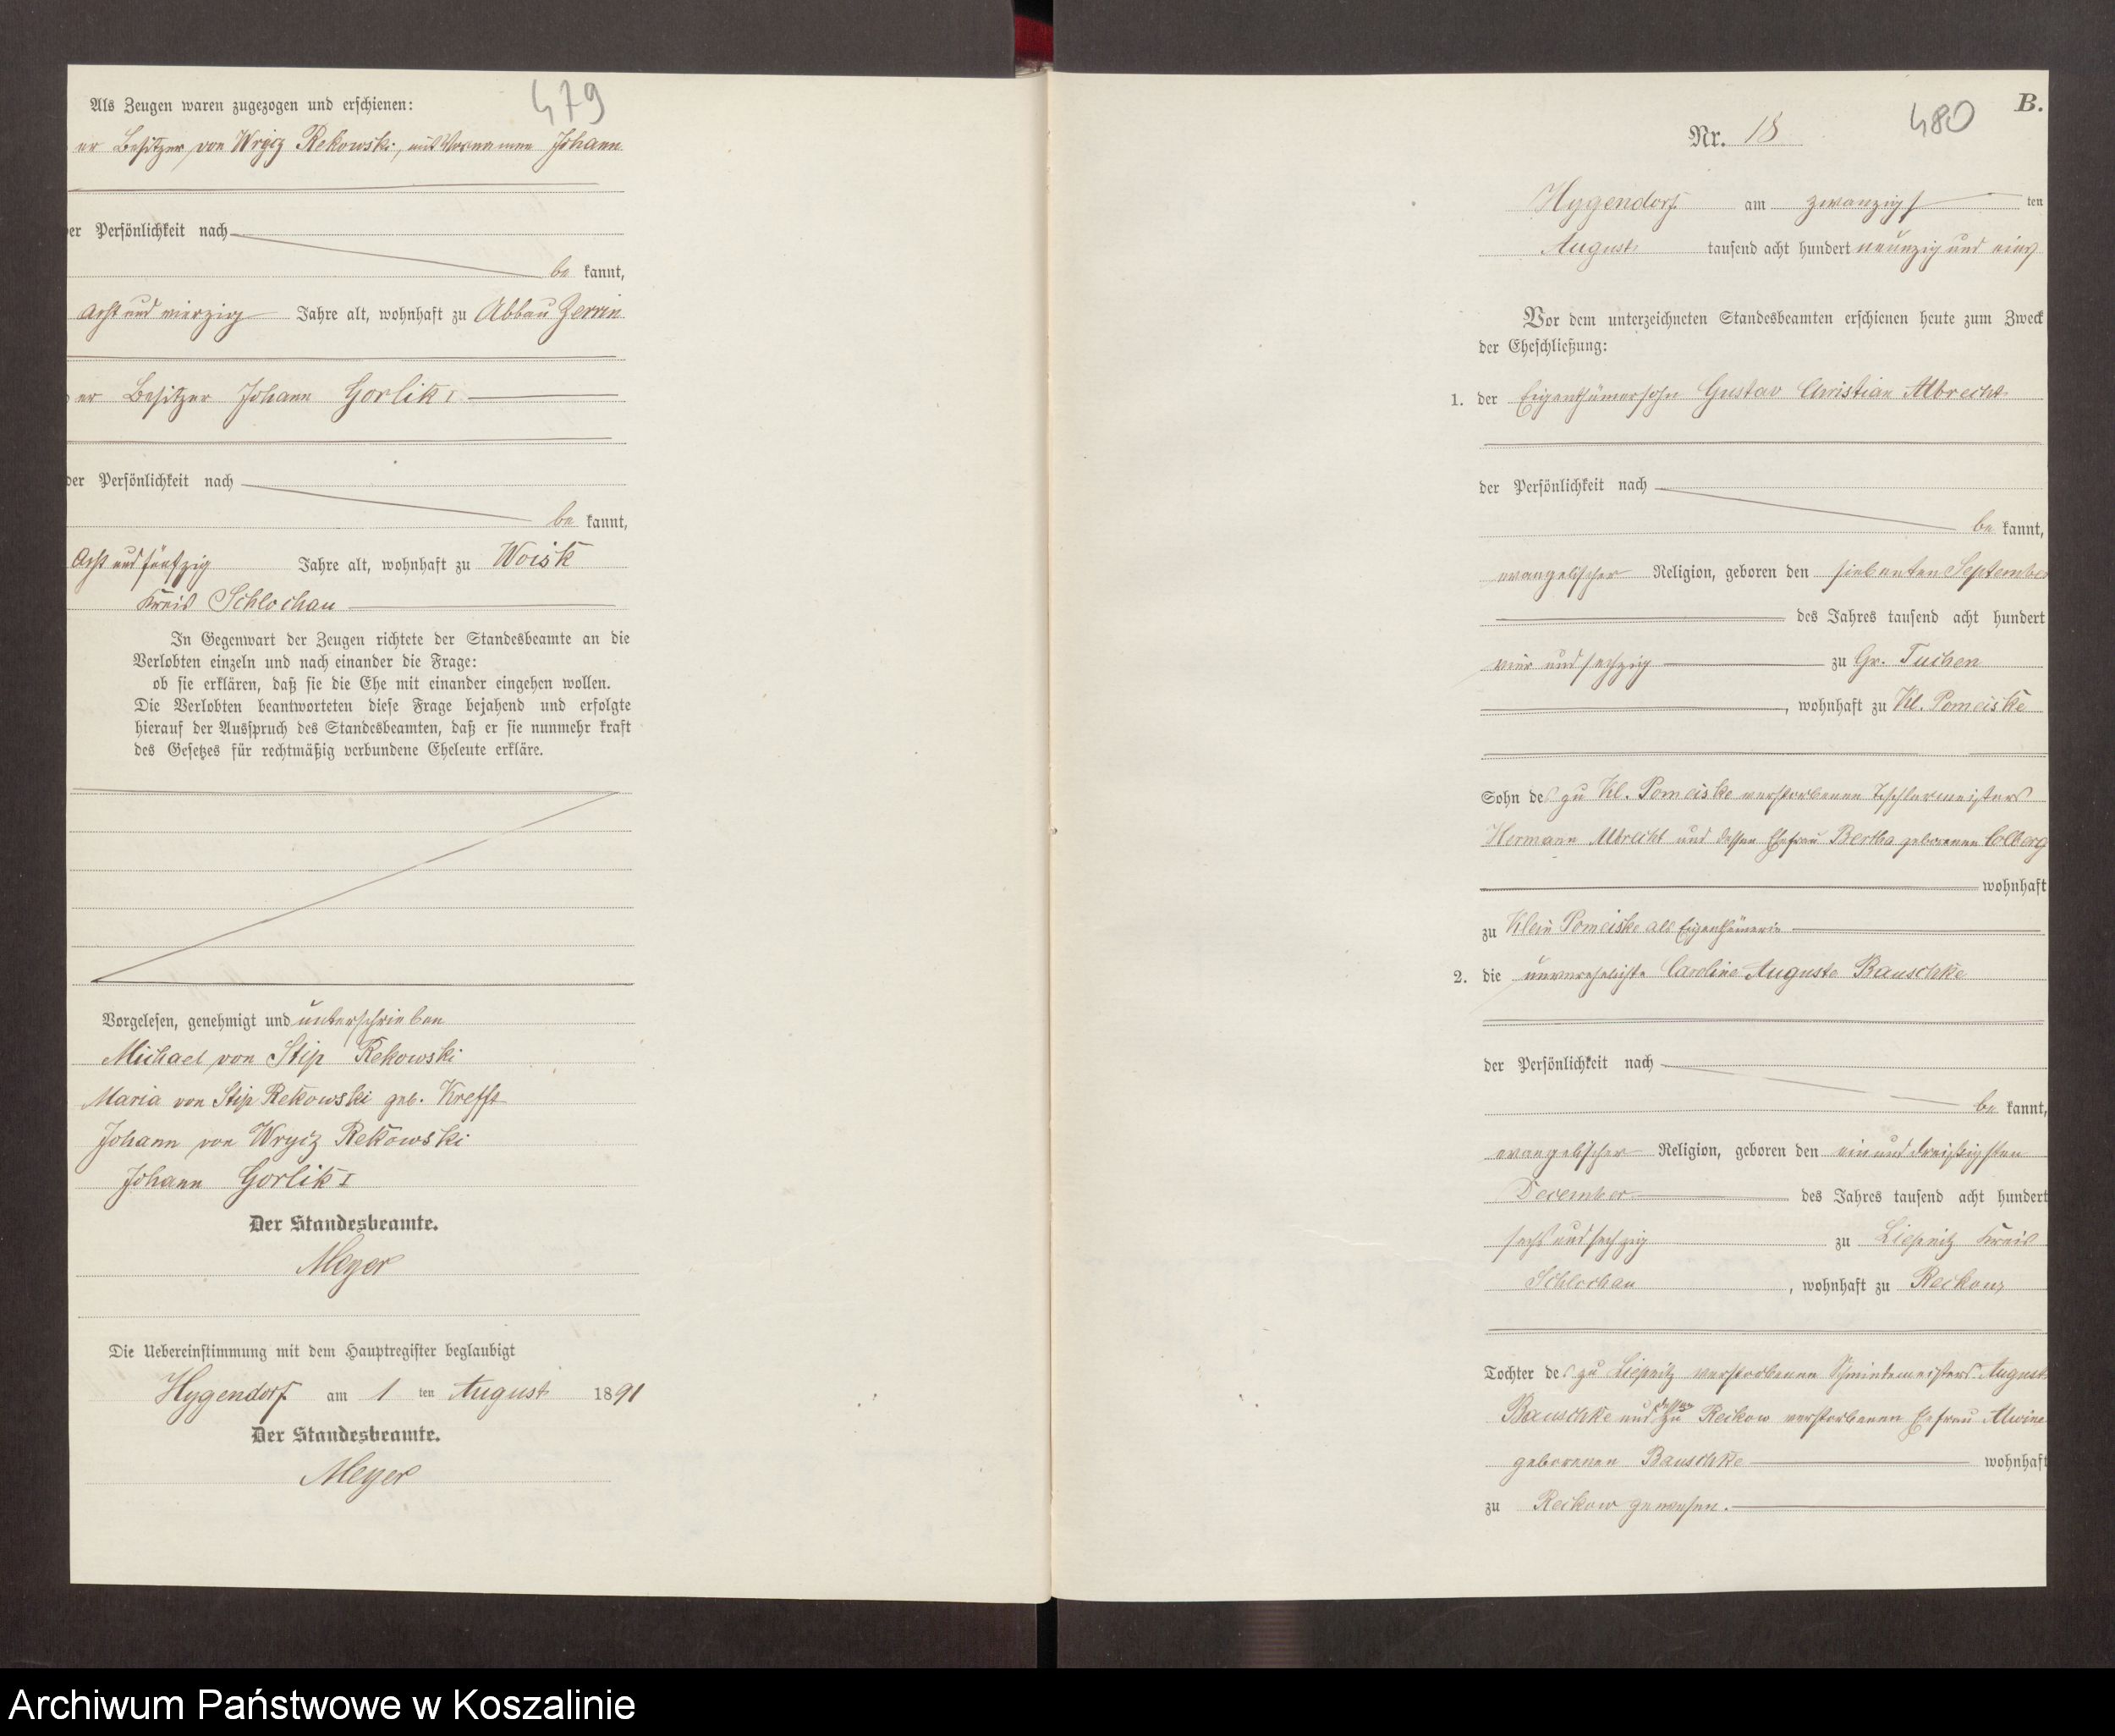 479
Als Zeugen waren zugezogen und erschienen:
er Besitzer von Wrycz Rekowski, mit Vornamen Johann
er Persönlichkeit nach
be kannt,
Acht und vierzig Jahre alt, wohnhaft zu Abbau Zerrin
er Besitzer Johann Gorlik I
der Persönlichkeit nach
be kannt,
Acht und fünfzig Jahre alt, wohnhaft zu Woisk
Kreis Schlochau
In Gegenwart der Zeugen richtete der Standesbeamte an die
Verlobten einzeln und nach einander die Frage:
ob sie erklären, daß sie die Ehe mit einander eingehen wollen.
Die Verlobten beantworteten diese Frage bejahend und erfolgte
hierauf der Ausspruch des Standesbeamten, daß er sie nunmehr kraft
des Gesetzes für rechtmäßig verbundene Eheleute erkläre.
Vorgelesen, genehmigt und unterschrieben
Michael von Stip Rekowski
Maria von Stip Rekowski geb. Krefft
Johann von Wrycz Rekowski
Johann Gorlik I
Der Standesbeamte.
Meyer
Die Uebereinstimmung mit dem Hauptregister beglaubigt
Hygendorf am 1 ten August 1891
Der Standesbeamte.
Meyer
480
B.
Nr. 18
Hygendorf am zwanzigs ten
August tausend acht hundert neunzig und eins
Vor dem unterzeichneten Standesbeamten erschienen heute zum Zweck
der Eheschließung:
1. der Eigenthümersohn Gustav Christian Albrecht
der Persönlichkeit nach
be kannt,
evangelischer Religion, geboren den siebenten September
des Jahres tausend acht hundert
vier und sechzig zu Gr. Tuchen
, wohnhaft zu Kl. Pomeiske
Sohn des zu Kl. Pomeiske verstorbenen Tischlermeisters
Hermann Albrecht und dessen Ehefrau Bertha geborenen Colberg
wohnhaft
zu Klein Pomeiske als Eigenthümerin
2. die unverehelichte Caroline Auguste Bauschke
der Persönlichkeit nach
be kannt,
evangelischer Religion, geboren den ein und dreißigsten
December des Jahres tausend acht hundert
sechs und sechzig zu Liepnitz Kreis
Schlochau , wohnhaft zu Reckow,
Tochter des zu Liepnitz verstorbenen Schmiedemeisters August
Bauschke und dessen zu Reckow verstorbenen Ehefrau Alwine
geborenen Bauschke wohnhaft
zu Reckow gewesen.
Archiwum Państwowe w Koszalinie